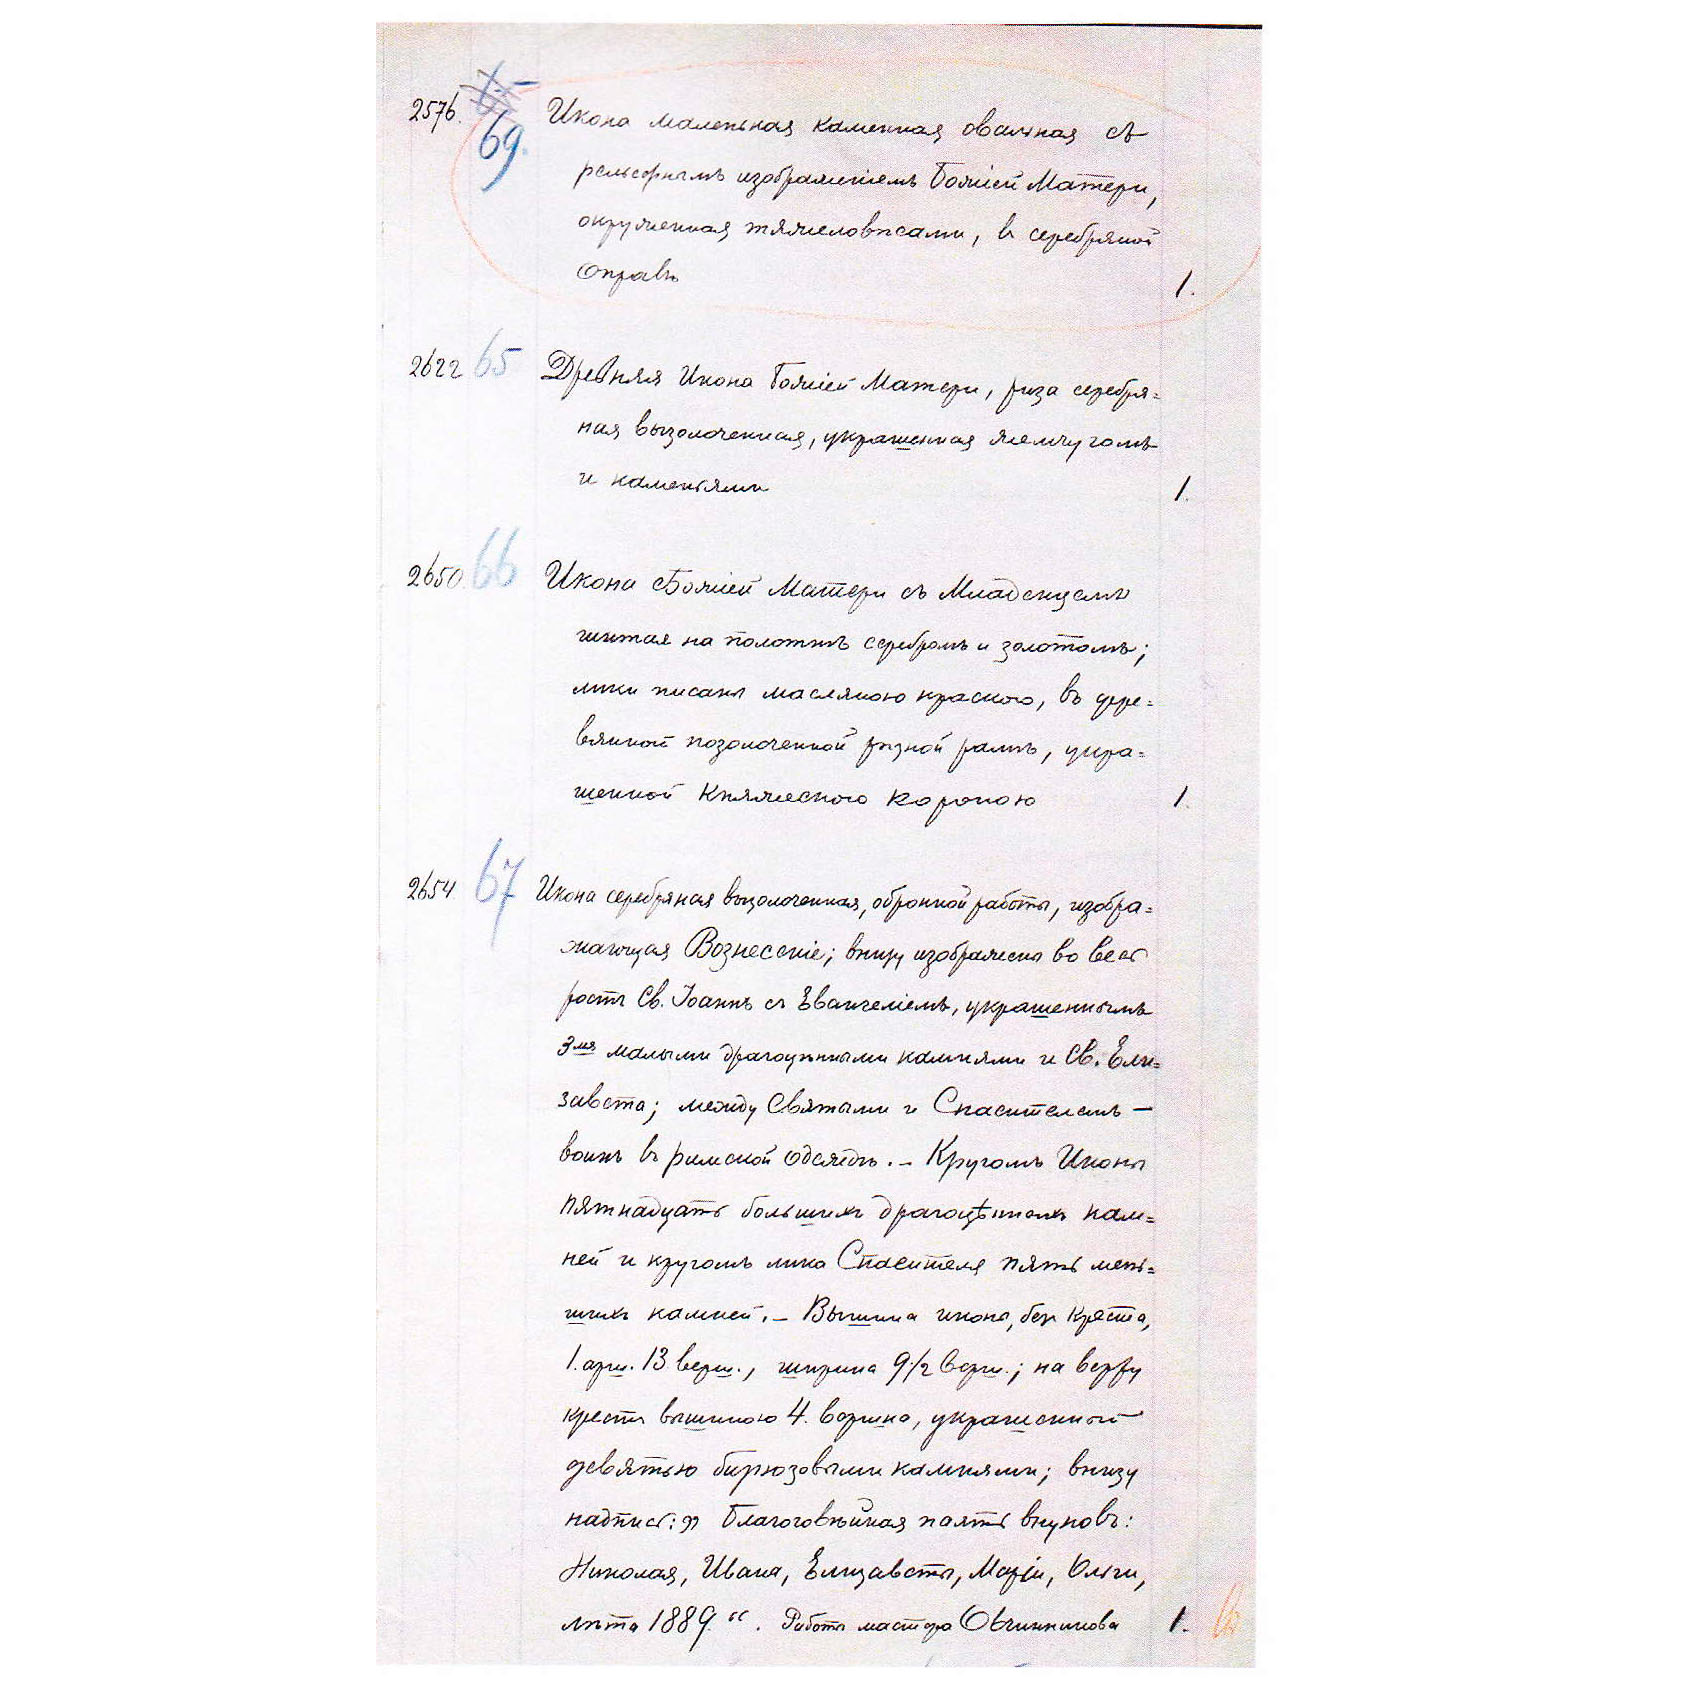 2576. 69. Икона маленькая каменная овальная съ
рельефнымъ изображеніемъ Божіей Матери,
окруженная тяжеловѣсами, въ серебряной
оправѣ 1.
2622 65 Древняя Икона Божіей Матери, риза серебря=
ная вызолоченная, украшенная жемчугомъ
и каменьями 1.
2650. 66 Икона Божіей Матери съ Младенцемъ
шитая на полотнѣ серебромъ и золотомъ;
лики писаны масляною краскою, въ дере=
вянной позолоченной рѣзной рамѣ, укра=
шенной Княжескою короною 1.
2654 67 Икона серебряная вызолоченная, обронной работы, изобра=
жающая Вознесеніе; внизу изображены во весь
ростъ Св. Іоаннъ съ Евангеліемъ, украшеннымъ
3мя малыми драгоцѣнными камнями и Св. Ели=
завета; между Святыми и Спасителемъ —
воинъ въ римской одеждѣ. — Кругомъ Иконы
пятнадцать большихъ драгоцѣнныхъ кам=
ней и кругомъ лика Спасителя пять мень=
шихъ камней. — Вышина иконы, безъ Креста,
1. арш. 13 верш., ширина 9 1/2 верш.; на верху
крестъ вышиною 4. вершка, украшенный
девятью бирюзовыми камнями; внизу
надпись: „ Благоговѣйная память внуковъ:
Николая, Ивана, Елизаветы, Маріи, Ольги,
лѣта 1889." . Работы мастера Овчинникова 1.